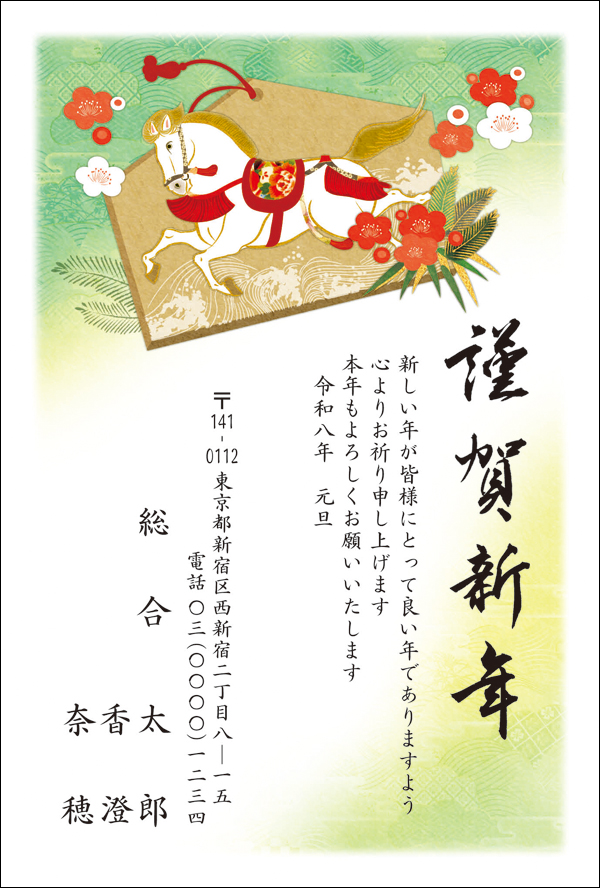 謹賀新年
新しい年が皆様にとって良い年でありますよう
心よりお祈り申し上げます
本年もよろしくお願いいたします
令和八年　元旦
〒141-0112 東京都新宿区西新宿二丁目八―一五
電話 〇三(〇〇〇〇)一二三四
総合 太郎
香澄
奈穂